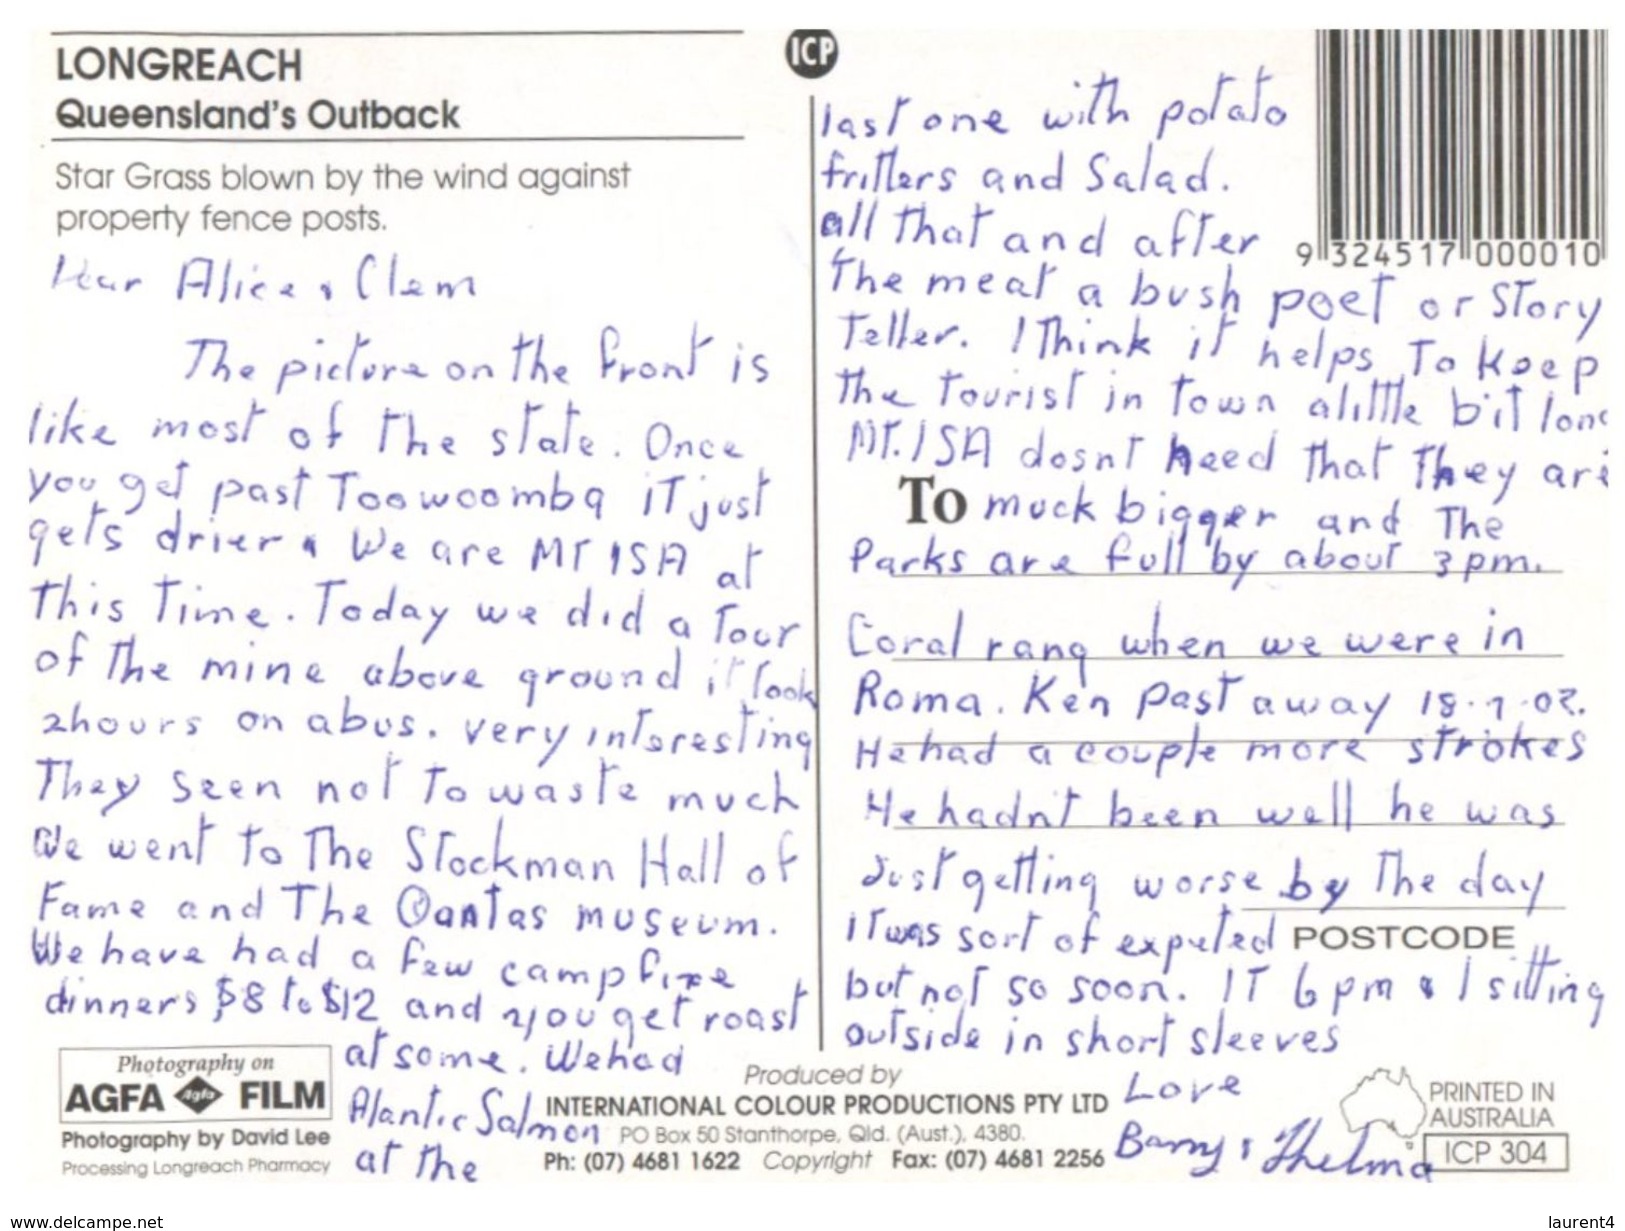 LONGREACH
Queensland's Outback
Star Grass blown by the wind against
property fence posts.
Dear Alice & Clem
The picture on the front is
like most of the state. Once
you get past Toowoomba iT just
gets drier & We are MT ISA at
This Time. Today we did a Tour
of The mine above ground iT Took
2hours on abus. very interesting
They seen not To waste much
We went To The Stockman Hall of
Fame and The Qantas museum.
We have had a few campfire
dinners $8 to $12 and you get roast
at some. We had
Alantic Salmon
at The
ICP
last one with potato
fritters and Salad.
all that and after
The meat a bush poet or Story
Teller. I Think it helps To keep
The Tourist in Town alittle bit long
MT. ISA dosnt need That They are
To
muck bigger and The
Parks are full by about 3pm.
Coral rang when we were in
Roma. Ken Past away 18.7.02.
He had a couple more strokes
He hadn't been well he was
Just getting worse by The day
iT was sort of expected
POSTCODE
but not so soon. IT 6pm & I sitting
outside in short sleeves
Love
Barry & Thelma
9 324517 000010
Photography on
AGFA Agfa FILM
Photography by David Lee
Processing Longreach Pharmacy
Produced by
INTERNATIONAL COLOUR PRODUCTIONS PTY LTD
PO Box 50 Stanthorpe, Qld. (Aust.), 4380.
Ph: (07) 4681 1622 Copyright Fax: (07) 4681 2256
PRINTED IN
AUSTRALIA
ICP 304
www.delcampe.net
laurent4